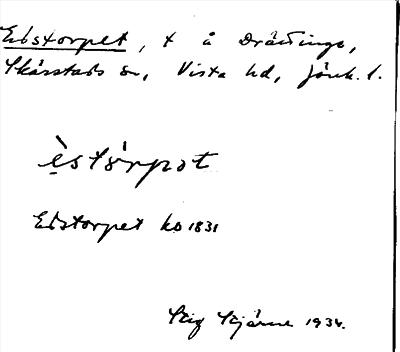 Edstorpet, t å Drättinge,
Skärstads sn, Vista hd, Jönk. l.
èstórpət
Edstorpet ko 1831
Stig Stjärne 1934.